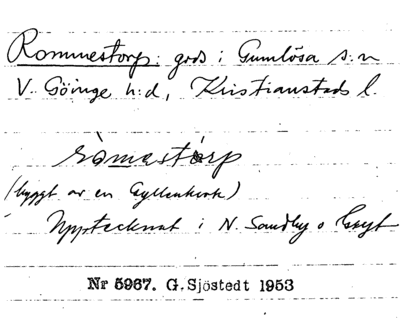 Rommestorp: gods i Gumlösa s:n
V. Göinge h:d, Kristianstads l.
ròmestórp
(byggt av en Gyllenkrok)
Upptecknat i N. Sandby o Gryt
Nr 5967. G. Sjöstedt 1953